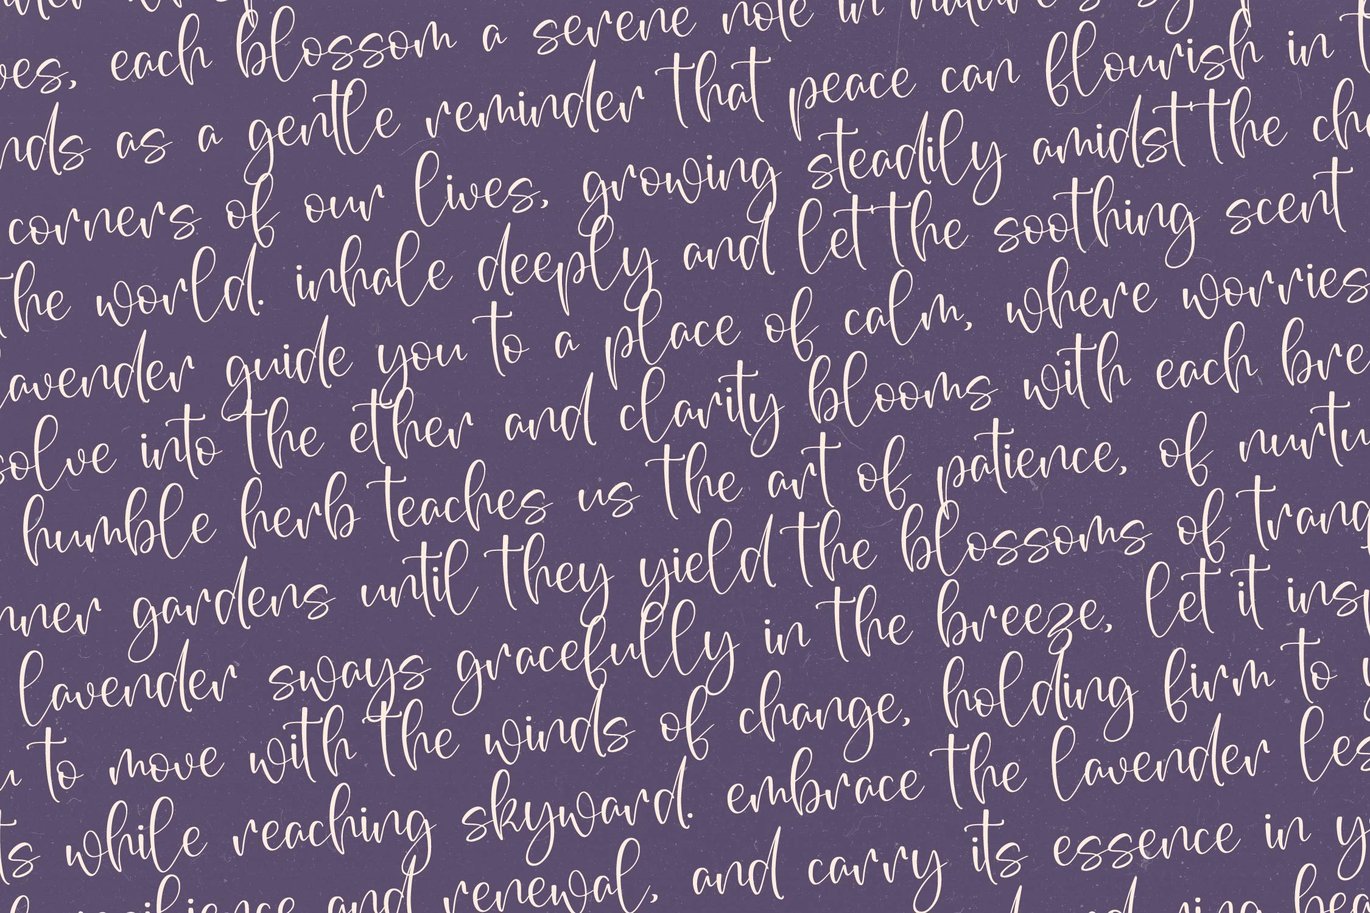 each blossom a serene note in nature's
nds as a gentle reminder that peace can flourish in t
corners of our lives, growing steadily amidst the cha
the world. inhale deeply and let the soothing scent
avender guide you to a place of calm, where worries
solve into the ether and clarity blooms with each bre
humble herb teaches us the art of patience, of nurtu
nner gardens until they yield the blossoms of tranq
lavender sways gracefully in the breeze, let it insp
u to move with the winds of change, holding firm to
ts while reaching skyward. embrace the lavender les
resilience and renewal, and carry its essence in y